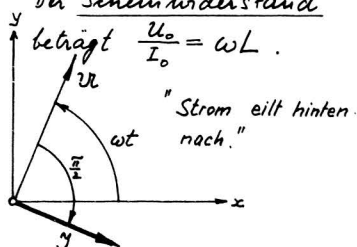 Der Scheinwiderstand
beträgt U₀/I₀ = ωL .
y
𝔘
"Strom eilt hinten
nach."
ωt
π/2
x
ℑ